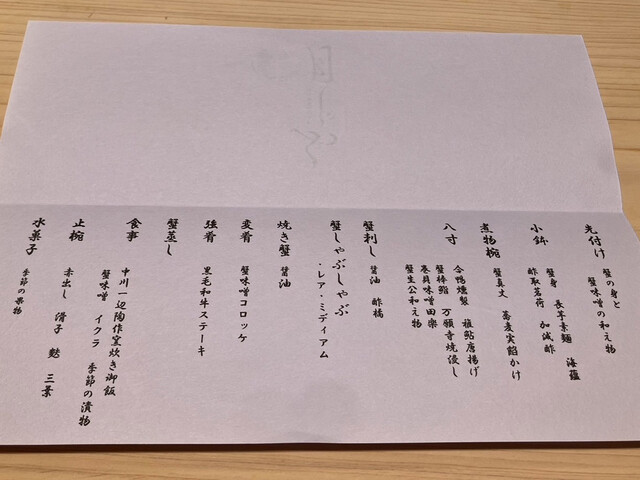 先付け 蟹の身と
蟹味噌の和え物
小鉢 蟹身 長芋素麺 海蘊
酢取茗荷 加減酢
煮物椀 蟹真丈 蕎麦実餡かけ
八寸 合鴨燻製 稚鮎唐揚げ
蟹棒鮨 万願寺焼浸し
巻貝味噌田楽
蟹生公和え物
蟹刺し 醤油 酢橘
蟹しゃぶしゃぶ
・レア・ミディアム
焼き蟹 醤油
変肴 蟹味噌コロッケ
強肴 黒毛和牛ステーキ
蟹蒸し
食事 中川一辺陶作窯炊き御飯
蟹味噌 イクラ 季節の漬物
止椀 赤出し 滑子 麩 三葉
水菓子 季節の果物